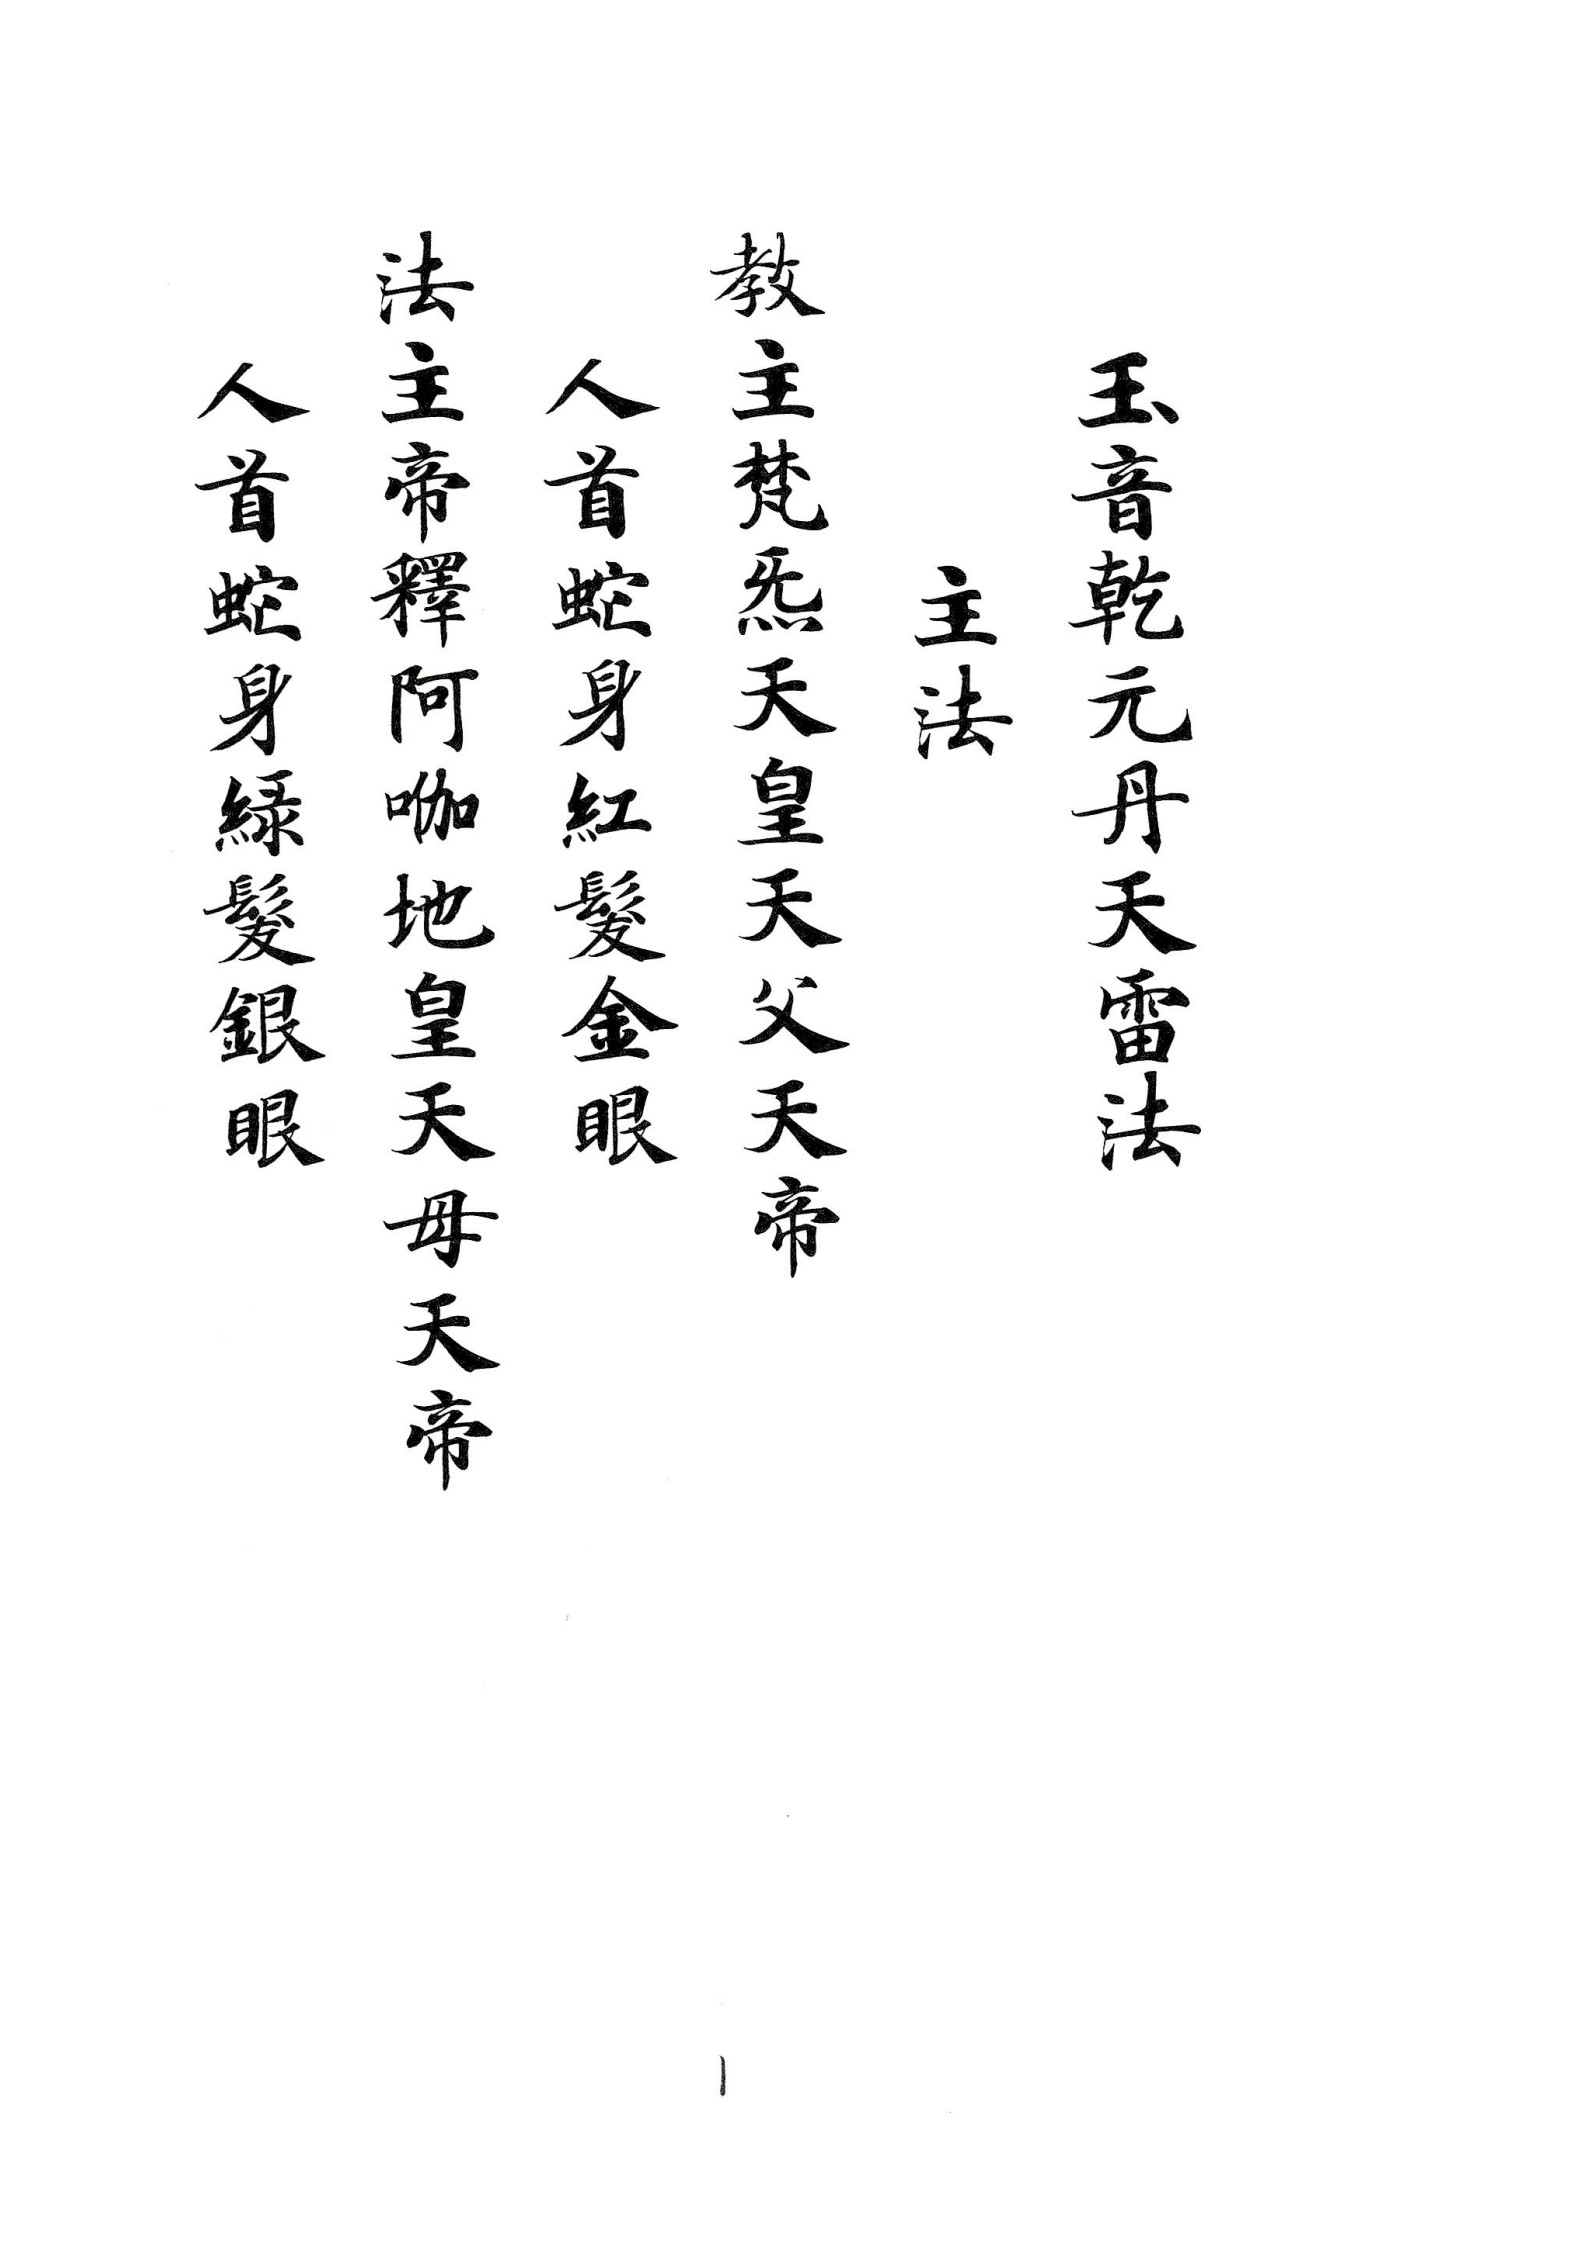 玉音乾元丹天雷法
主法
教主梵炁天皇天父天帝
人首蛇身紅髮金眼
法主帝釋阿咖地皇天母天帝
人首蛇身綠髮銀眼
1